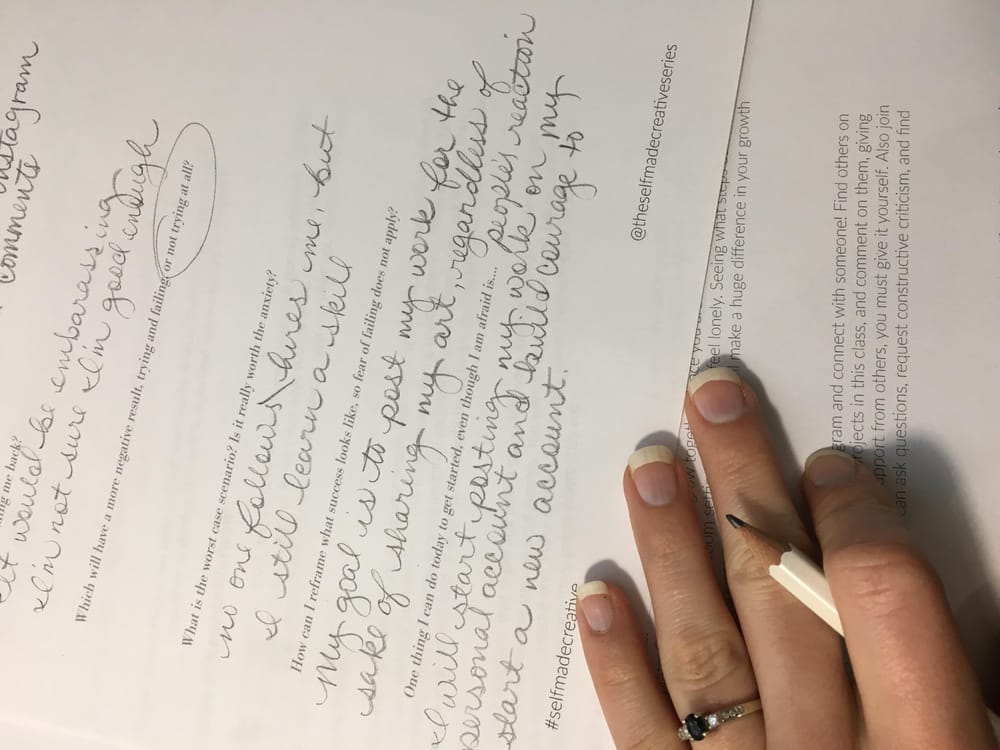 Instagram
comments
ing me back?
It would be embarassing
I'm not sure I'm good enough
Which will have a more negative result, trying and failing or not trying at all?
What is the worst case scenario? Is it really worth the anxiety?
no one follows\hires me, but
I still learn a skill
How can I reframe what success looks like, so fear of failing does not apply?
My goal is to post my work for the
sake of sharing my art, regardless of
people's reaction
One thing I can do today to get started, even though I am afraid is....
I will start posting my work on my
personal account and build courage to
start a new account.
#selfmadecreative
@theselfmadecreativeseries
feel lonely. Seeing what steps
make a huge difference in your growth
gram and connect with someone! Find others on
rojects in this class, and comment on them, giving
upport from others, you must give it yourself. Also join
can ask questions, request constructive criticism, and find